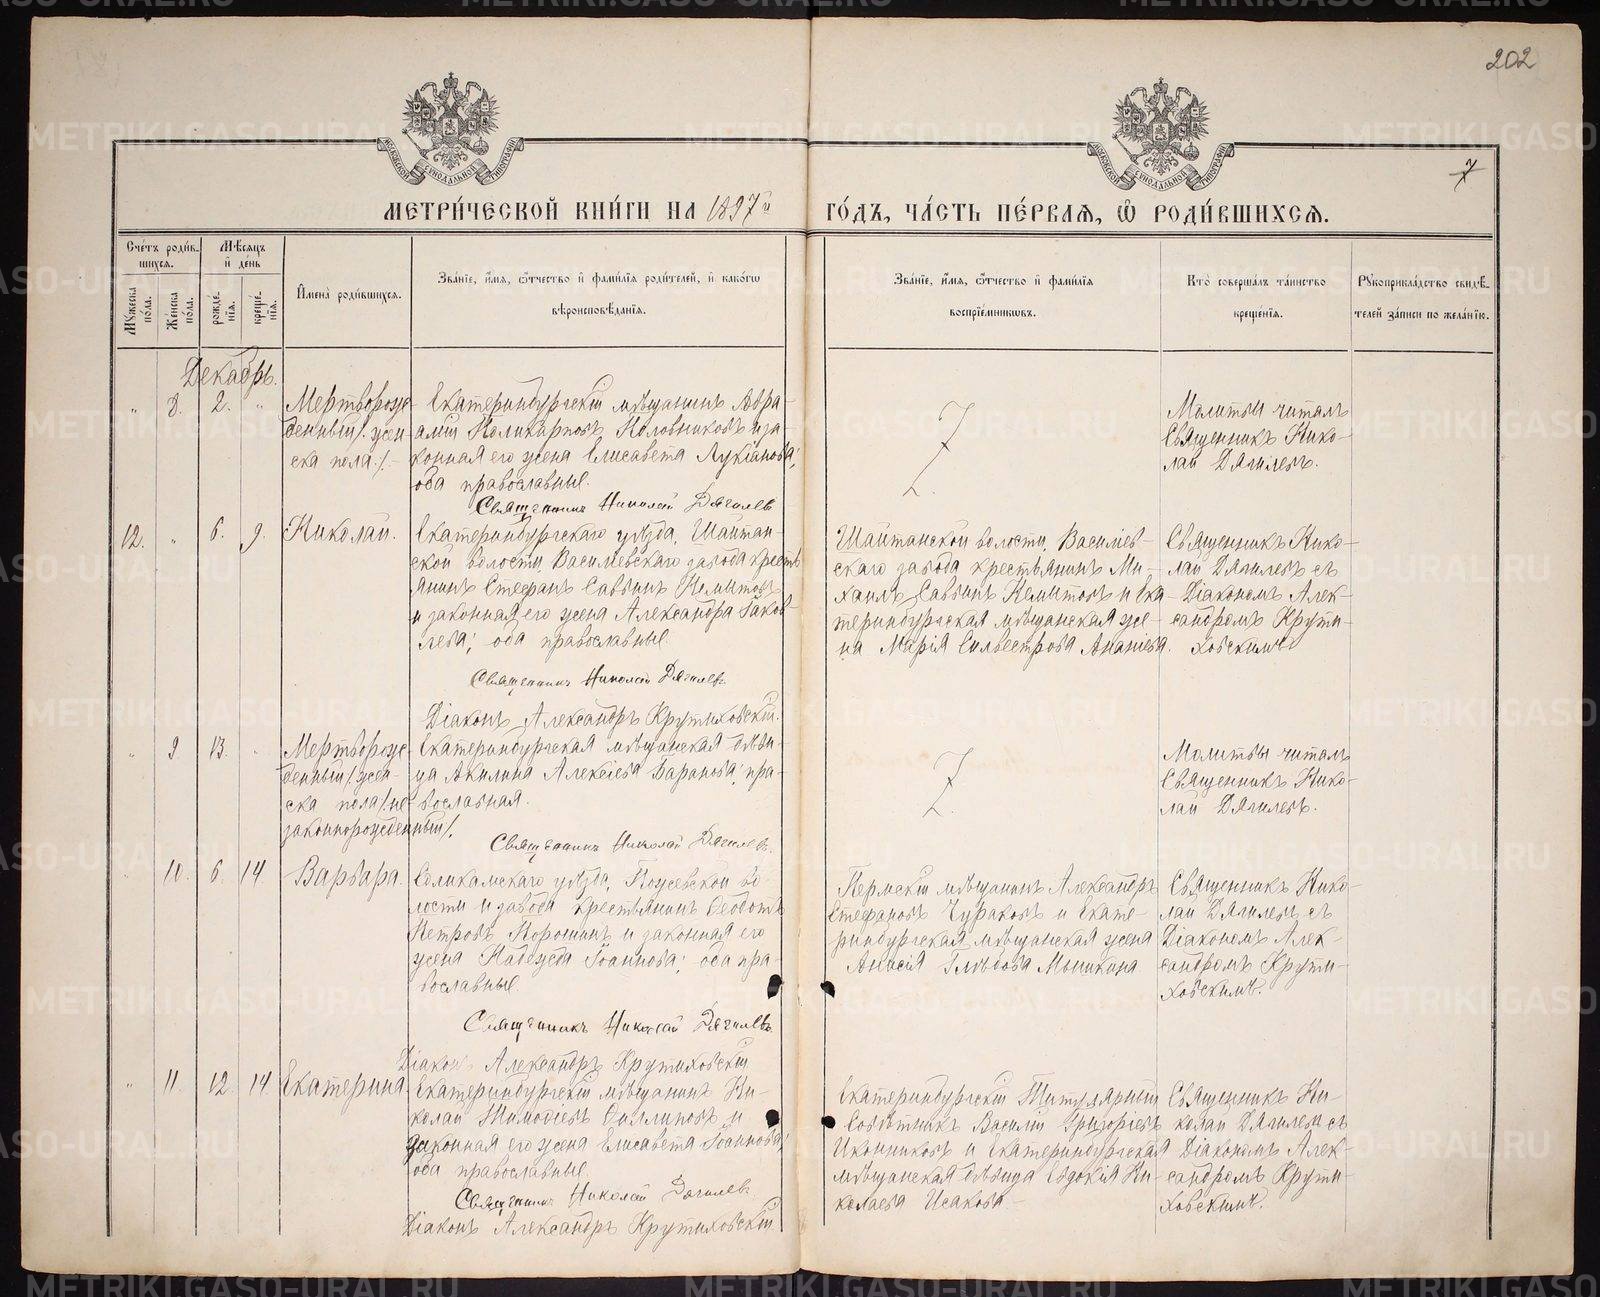 202
7
МЕТРИ́ЧЕСКОЙ КНИ́ГИ НА 1897й ГО́ДЪ, ЧА́СТЬ ПЕ́РВАѦ, Ѡ҆ РОДИ́ВШИХСѦ.
Сче́тъ роди́в-
шихсѧ.
Мѣ́сѧцъ
и҆ де́нь
Мꙋ́жеска по́ла.
Же́нска по́ла.
рожде́-
нїѧ.
креще́-
нїѧ.
И҆мена̀ роди́вшихсѧ.
Зва́нїе, и҆́мѧ, ѻ҆́тчество и҆ фами́лїѧ роди́телей, и҆ како́гѡ
вѣроисповѣ́данїѧ.
Зва́нїе, и҆́мѧ, ѻ҆́тчество и҆ фами́лїѧ
воспрїе́мникѡвъ.
Кто̀ соверша́лъ та́инство
креще́нїѧ.
Рꙋкоприкла́дство свидѣ́-
телей за́писи по жела́нїю.
Декабрь.
" 8. 2. "
Мертворож-
денный /жен-
ска пола./-
Екатеринбургскій мѣщанинъ Авра-
амій Поликарповъ Половниковъ и за-
конная его жена Елисавета Лукіанова;
оба православные.
Священникъ Николай Дягилевъ
Молитвы читалъ
Священникъ Нико-
лай Дягилевъ.
12. " 6. 9.
Николай.
Екатеринбургскаго уѣзда, Шайтан-
ской волости, Васильевскаго завода кресть-
янинъ Стефанъ Саввинъ Немытовъ
и законная его жена Александра Іаков-
лева; оба православные
Священникъ Николай Дягилевъ
Діаконъ Александръ Крутиховскій.
Шайтанской волости, Василіев-
скаго завода крестьянинъ Ми-
хаилъ Саввинъ Немытовъ и Ека-
теринбургская мѣщанская же-
на Марія Сильвестрова Ананіева.
Священникъ Нико-
лай Дягилевъ съ
Діакономъ Алек-
сандромъ Крути-
ховскимъ
" 9 13. "
Мертворож-
денный /жен-
ска пола/ не-
законнорожденный/.
Екатеринбургская мѣщанская дѣви-
ца Акилина Алексѣева Баранова; пра-
вославная.
Священникъ Николай Дягилевъ.
Молитвы читалъ
Священникъ Нико-
лай Дягилевъ.
" 10. 6. 14
Варвара.
Соликамскаго уѣзда, Пожевской во-
лости и завода крестьянинъ Ѳеодотъ
Петровъ Порошинъ и законная его
жена Надежда Іоаннова; оба пра-
вославные.
Священникъ Николай Дягилевъ
Діаконъ Александръ Крутиховскій
Пермскій мѣщанинъ Александръ
Стефановъ Чураковъ и Екате-
ринбургская мѣщанская жена
Анисія Глѣбова
Священникъ Нико-
лай Дягилевъ съ
Діакономъ Алек-
сандромъ Крути-
ховскимъ.
" 11. 12. 14.
Екатерина.
Екатеринбургскій мѣщанинъ Ни-
колай Тимоѳеевъ Филиповъ и
законная его жена Елисавета Іоаннова;
оба православные
Священникъ Николай Дягилевъ
Діаконъ Александръ Крутиховскій
Екатеринбургскій Титулярный
Совѣтникъ Василій Григорьевъ
Иконниковъ и Екатеринбургская
мѣщанская дѣвица Евдокія Ни-
колаева Исакова.
Священникъ Ни-
колай Дягилевъ съ
Діакономъ Алек-
сандромъ Крути-
ховскимъ.
METRIKI.GASO-URAL.RU